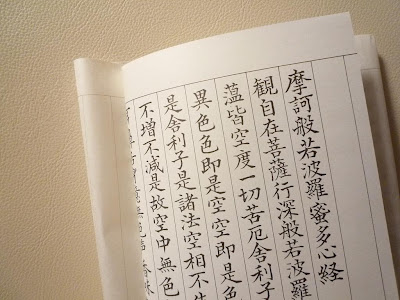 摩訶般若波羅蜜多心経
観自在菩薩行深般若波羅
蘊皆空度一切苦厄舎利子
異色色即是空空即是
是舎利子是諸法空相不
不増不減是故空中無色
意無色声香味